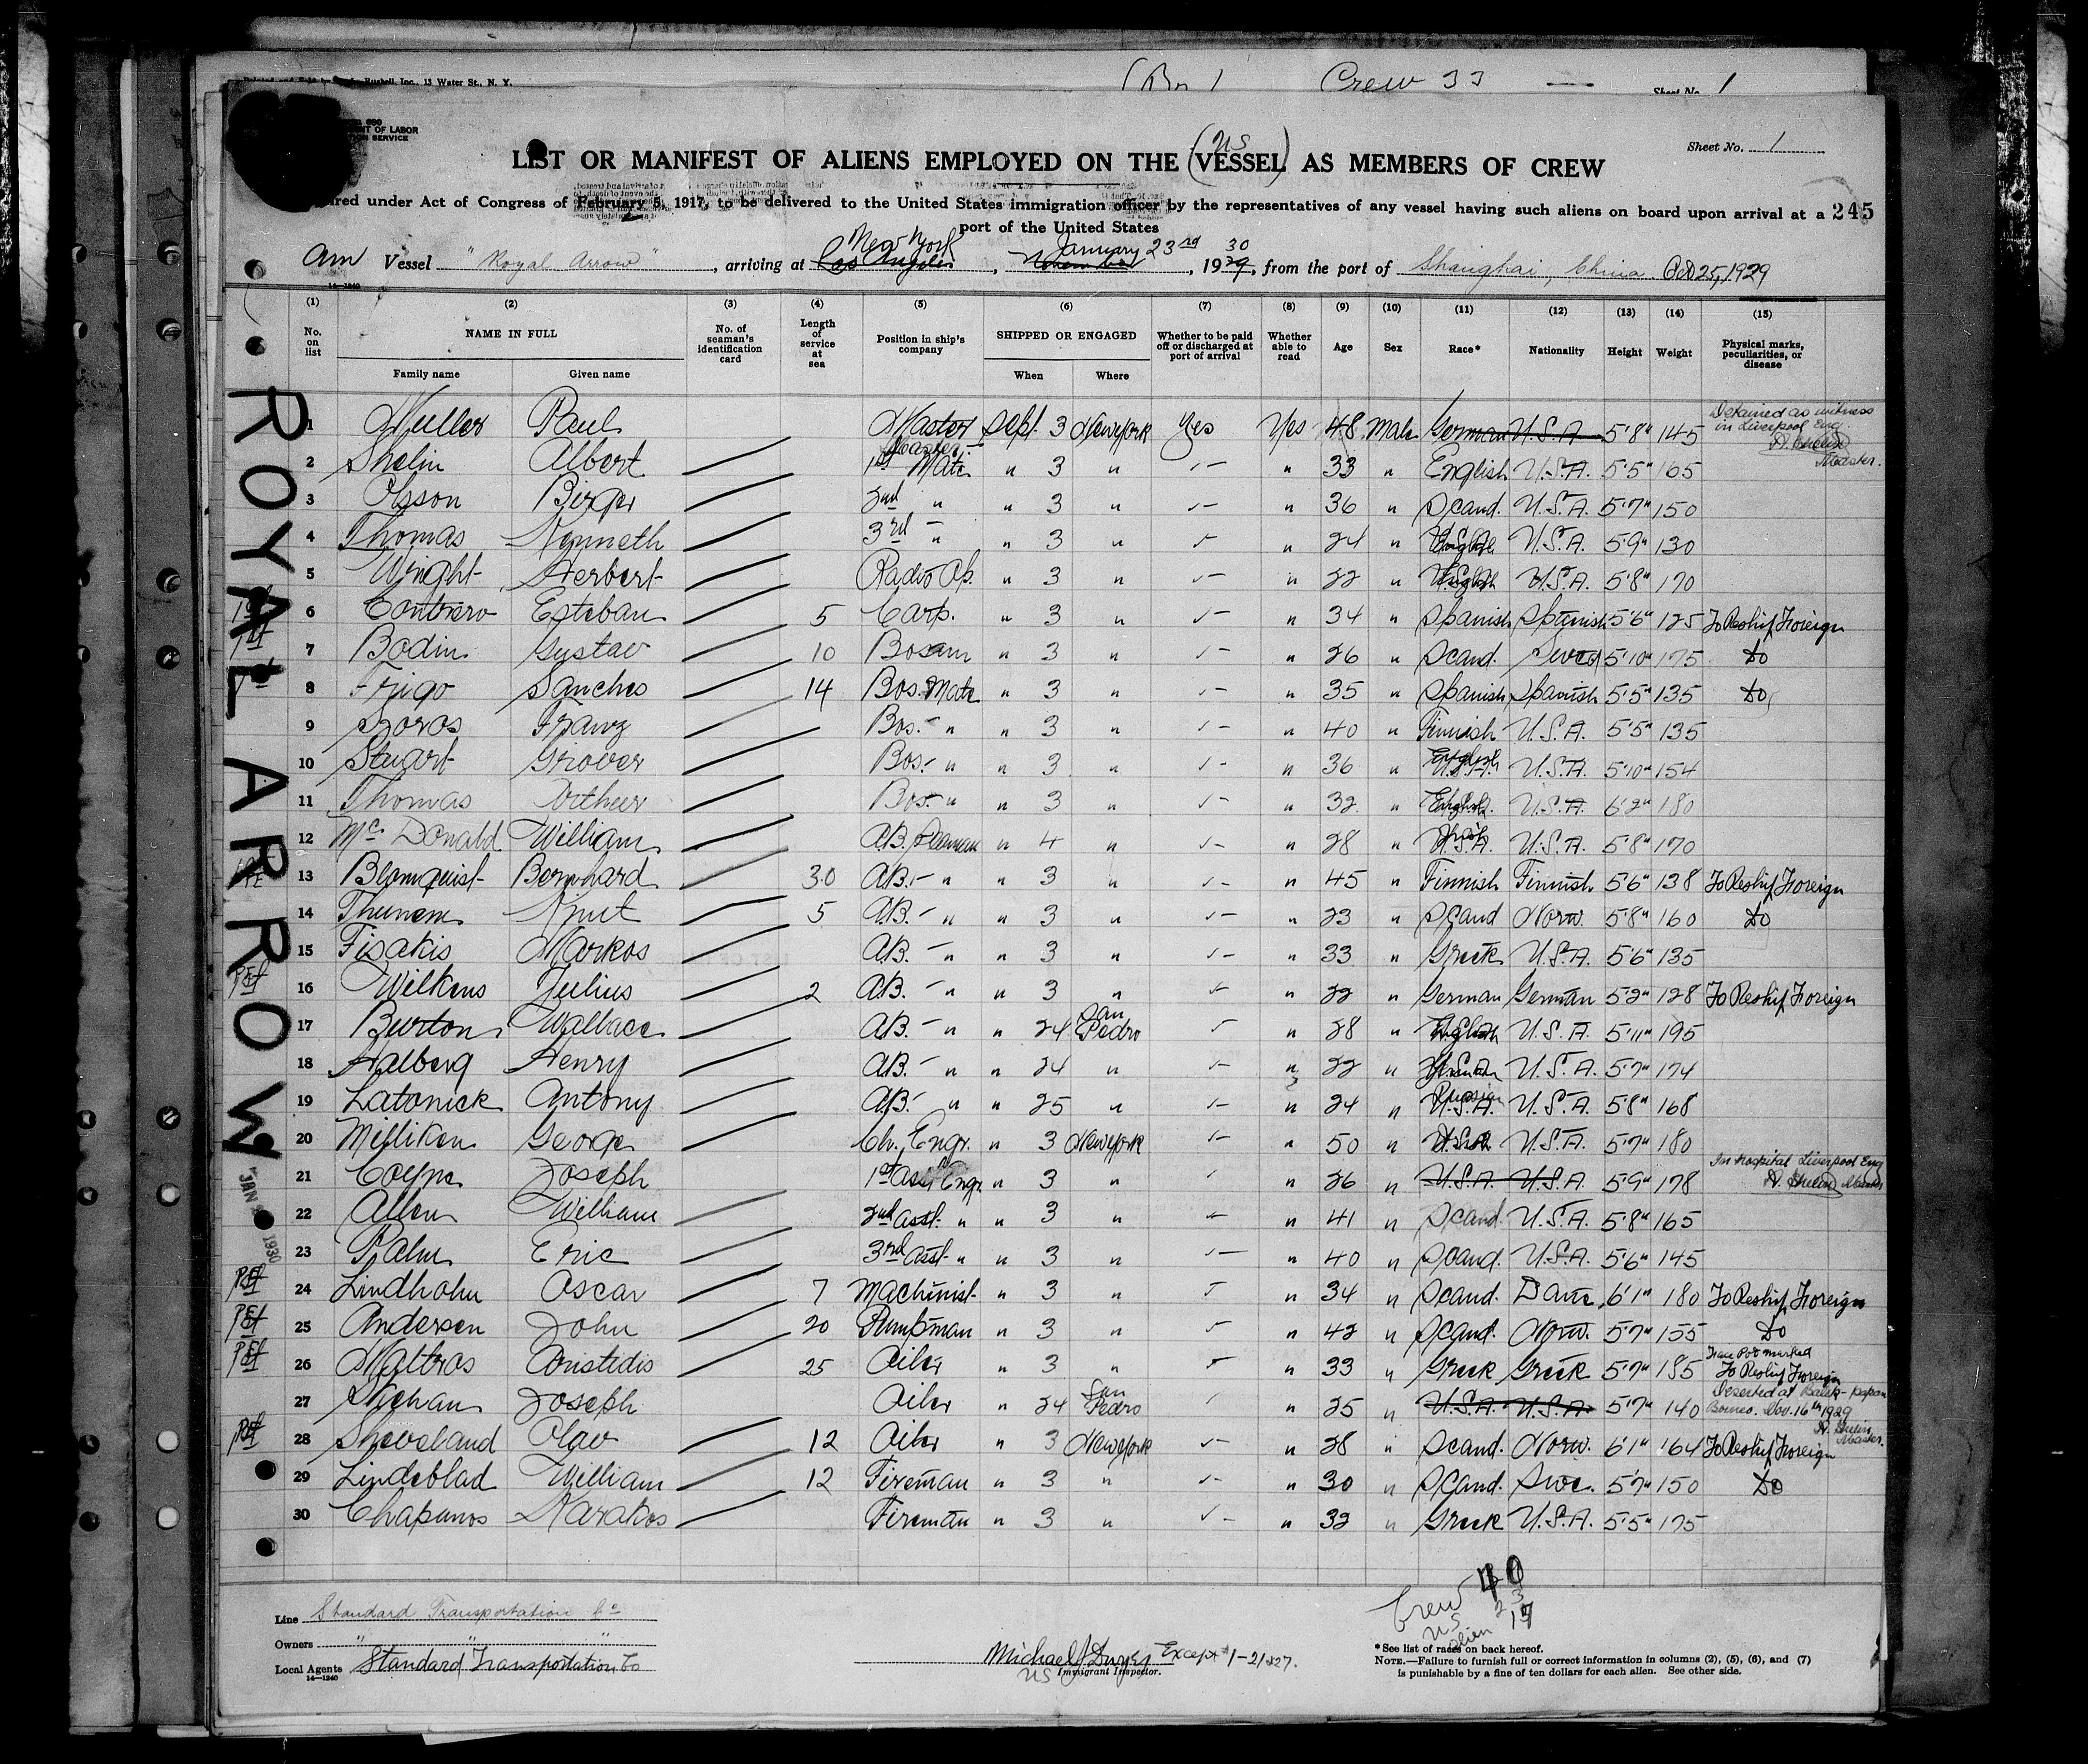 Rushell, Inc., 13 Water St., N. Y.
Crew 33
Sheet No. 1
680
OF LABOR
SERVICE
Sheet No. 1
US
LIST OR MANIFEST OF ALIENS EMPLOYED ON THE (VESSEL) AS MEMBERS OF CREW
ared under Act of Congress of February 5, 1917, to be delivered to the United States immigration officer by the representatives of any vessel having such aliens on board upon arrival at a 245
port of the United States
New York January 23rd 30
Am Vessel "Royal Arrow", arriving at Los Angeles, 1929, from the port of Shanghai, China Oct 25, 1929
14-1240
(1) (2) (3) (4) (5) (6) (7) (8) (9) (10) (11) (12) (13) (14) (15)
No. on list NAME IN FULL No. of seaman's identification card Length of service at sea Position in ship's company SHIPPED OR ENGAGED Whether to be paid off or discharged at port of arrival Whether able to read Age Sex Race* Nationality Height Weight Physical marks, peculiarities, or disease
Family name Given name When Where
ROYAL ARROW
1 Muller Paul Master Sept. 3 New York Yes Yes 48 Male German U.S.A. 5'8" 145 Detained as witness in Liverpool Eng. A. Shelin Master.
2 Shelin Albert Master 1st Mate " 3 " " 33 " English U.S.A. 5'5" 165
3 Olsson Birger 2nd " " 3 " " 36 " Scand. U.S.A. 5'7" 150
4 Thomas Kenneth 3rd " " 3 " " 24 " English U.S.A. 5'9" 130
5 Wright Herbert Radio Op. " 3 " " 22 " English U.S.A. 5'8" 170
6 Contrero Esteban 5 Carp. " 3 " " 34 " Spanish Spanish 5'6" 125 To Reship Foreign
7 Bodin Gustav 10 Bosam " 3 " " 26 " Scand. Swed 5'10" 175 Do
8 Frigo Sanches 14 Bos. Mate " 3 " " 35 " Spanish Spanish 5'5" 135 Do
9 Soros Franz Bos. " " 3 " " 40 " Finnish U.S.A. 5'5" 135
10 Stuart Grover Bos. " " 3 " " 36 " English U.S.A. 5'10" 154
11 Thomas Arther Bos. " " 3 " " 32 " English U.S.A. 6'2" 180
12 Mc Donald William A.B. Seaman " 4 " " 28 " Irish U.S.A. 5'8" 170
13 Blomquist Bernhard 30 A.B. " " 3 " " 45 " Finnish Finnish 5'6" 138 To Reship Foreign
14 Thunem Knut 5 A.B. " " 3 " " 23 " Scand Norw. 5'8" 160 Do
15 Fisakis Markos A.B. " " 3 " " 33 " Greek U.S.A. 5'6" 135
16 Wilkens Julius 2 A.B. " " 3 " " 22 " German German 5'2" 128 To Reship Foreign
17 Burton Wallace A.B. " " 24 San Pedro " 28 " English U.S.A. 5'11" 195
18 Halberg Henry A.B. " " 24 " " 22 " U.S.A. 5'7" 174
19 Latonick Antony A.B. " " 25 " " 24 " Russian U.S.A. U.S.A. 5'8" 168
20 Milliken George Ch. Engr. " 3 New York " 50 " U.S.A. 5'7" 180
21 Coyne Joseph 1st Asst Engr. " 3 " " 26 " U.S.A. U.S.A. 5'9" 178 In hospital Liverpool Eng A. Shelin Master
22 Allen William 2nd Asst. " " 3 " " 41 " Scand. U.S.A. 5'8" 165
23 Palm Eric 3rd Asst. " " 3 " " 40 " Scand. U.S.A. 5'6" 145
24 Lindholm Oscar 7 Machinist " 3 " " 34 " Scand. Dane 6'1" 180 To Reship Foreign
25 Andersen John 20 Pumpman " 3 " " 42 " Scand. Norw. 5'7" 155 Do
26 Maltros Aristidis 25 Oiler " 3 " " 33 " Greek Greek 5'7" 185 Face Pox marked To Reship Foreign
27 Joseph Oiler " 24 San Pedro " 25 " U.S.A. U.S.A. 5'7" 140 Deserted at Balik-papan Borneo. Nov. 16th 1929 A. Shelin Master.
28 Sheveland Olav 12 Oiler " 3 New York " 28 " Scand. Norw. 6'1" 164 To Reship Foreign
29 Lindeblad William 12 Fireman " 3 " " 30 " Scand. Swe. 5'7" 150 Do
30 Chapanos Karakos Fireman " 3 " " 32 " Greek U.S.A. 5'5" 175
JAN 1930
Crew 40
US 23
alien 17
Line Standard Transportation Co
Owners " " "
Local Agents Standard Transportation Co
14-1240
Michael J Dwyer Except #1-21&27.
US Immigrant Inspector.
*See list of races on back hereof.
NOTE.—Failure to furnish full or correct information in columns (2), (5), (6), and (7)
is punishable by a fine of ten dollars for each alien. See other side.